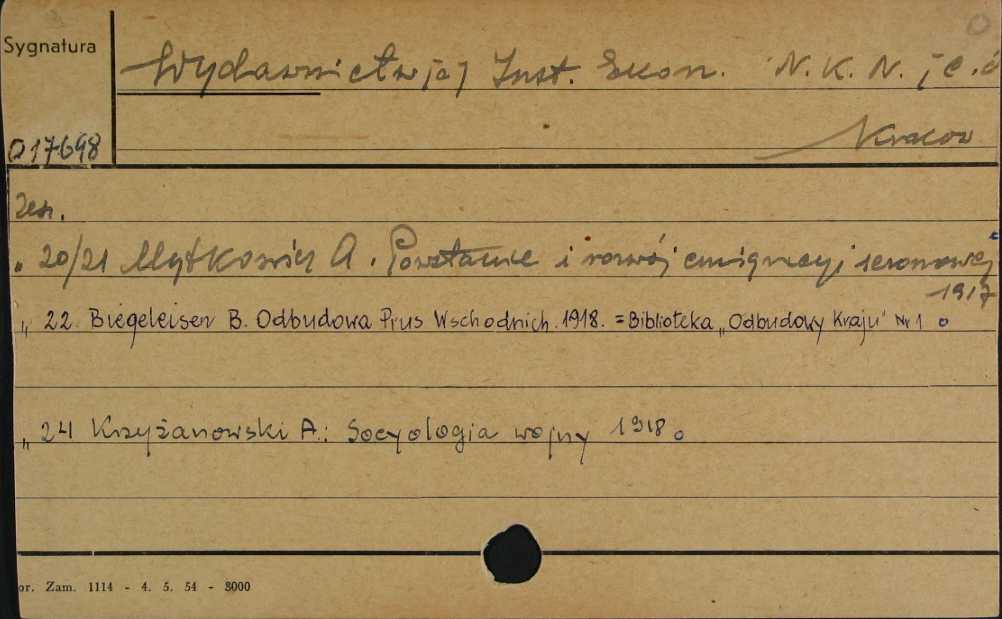 Sygnatura
Wydawnictw[a] Inst. Ekon. N.K.N. [c.d
D17698
Kraków
Zesz.
„ 20/21 Mytkowicz A. Powstanie i rozwój emigracyi sezonowej
1917
„ 22. Biegeleisen B. Odbudowa Prus Wschodnich. 1918. = Biblioteka „Odbudowy Kraju" Nr 1
„ 24 Krzyżanowski A.: Socyologia wojny 1918
or. Zam. 1114 - 4. 5. 54 - 8000